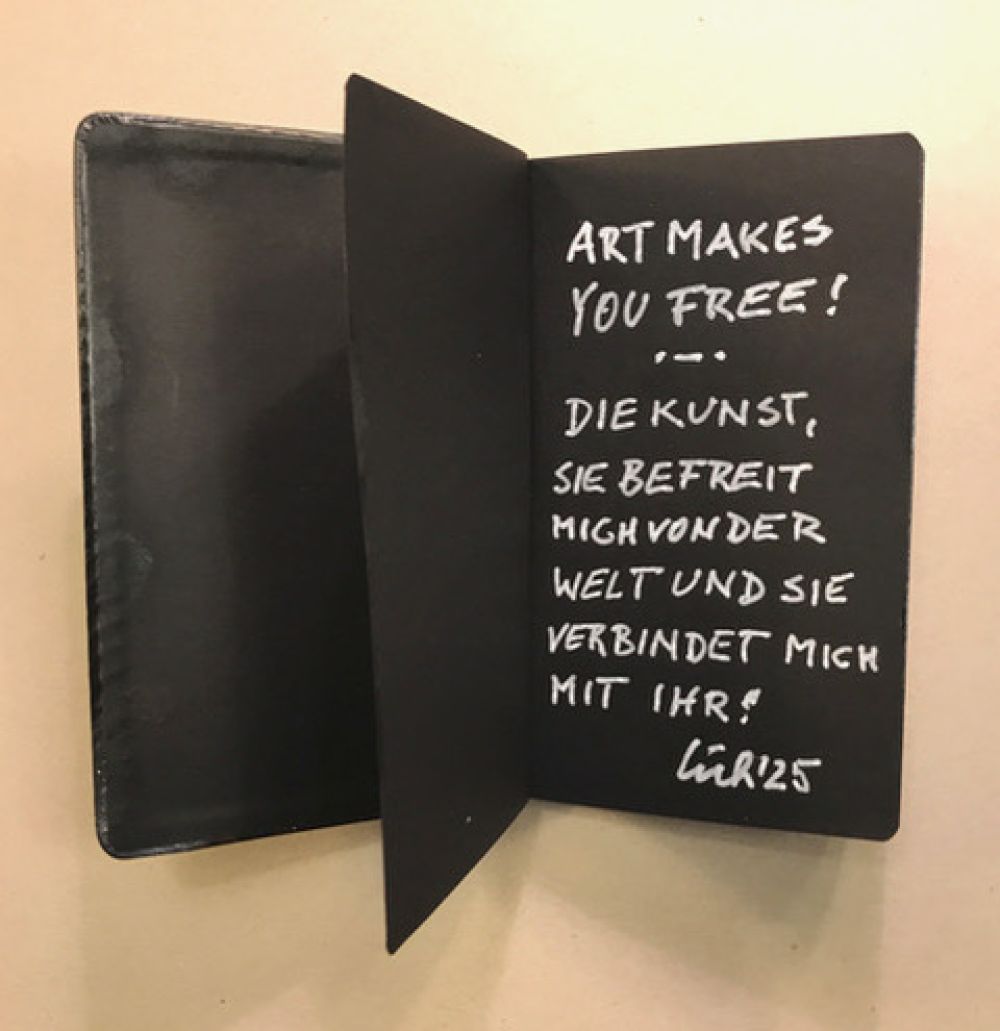 ART MAKES
YOU FREE!
·–·
DIE KUNST,
SIE BEFREIT
MICH VON DER
WELT UND SIE
VERBINDET MICH
MIT IHR!
'25